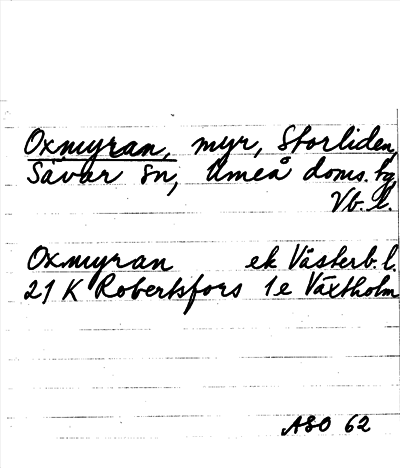 Oxmyran, myr, Storliden,
Sävar sn, Umeå doms. tg,
Vb. l.
Oxmyran ek Västerb. l.
21 K Robertsfors 1e Växtholm
ASO 62